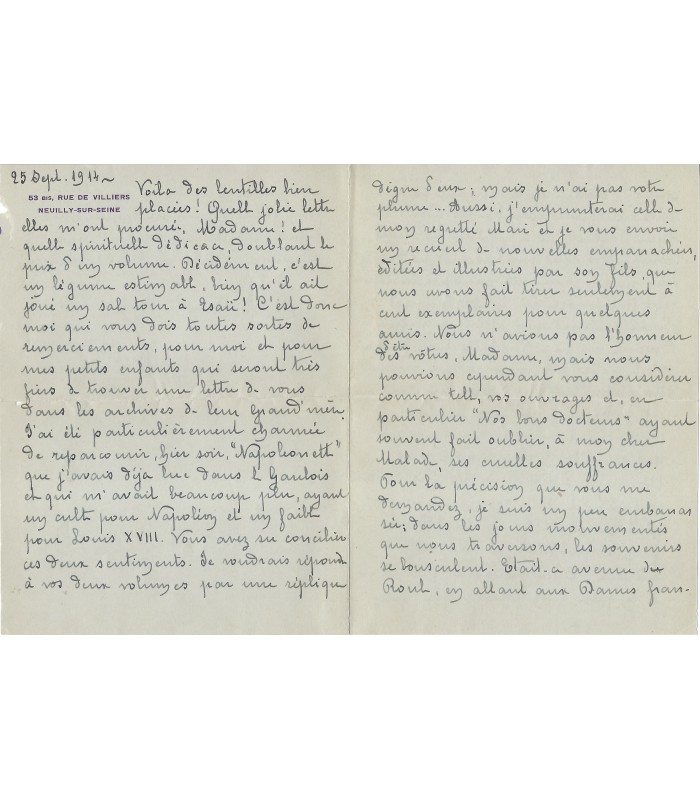 25 Sept. 1914
53 BIS, RUE DE VILLIERS
NEUILLY-SUR-SEINE
Voilà des lentilles bien
placées ! Quelle jolie lettre
elles m'ont procurée, Madame ! et
quelle spirituelle dédicace, doublant le
prix d'un volume. Décidément, c'est
un légume estimable, bien qu'il ait
joué un sale tour à Esaü ! C'est donc
moi qui vous dois toutes sortes de
remerciements, pour moi et pour
mes petits enfants qui seront très
fiers de trouver une lettre de vous
dans les archives de leur grand'mère.
J'ai été particulièrement charmée
de reparcourir, hier soir, "Napoléonette"
que j'avais déjà lue dans le Gaulois
et qui m'avait beaucoup plu, ayant
un culte pour Napoléon et un faible
pour Louis XVIII. Vous avez su concilier
ces deux sentiments. Je voudrais répondre
à vos deux volumes par une réplique
digne d'eux ; mais je n'ai pas votre
plume... Aussi, j'emprunterai celle de
mon regretté Mari et je vous envoie
un recueil de nouvelles empanachées,
éditées et illustrées par son fils, que
nous avons fait tirer seulement à
cent exemplaires pour quelques
amis. Nous n'avions pas l'honneur
d'être
des vôtres, Madame, mais nous
pouvions cependant vous considérer
comme telle, vos ouvrages et, en
particulier "Nos bons docteurs" ayant
souvent fait oublier, à mon cher
Malade, ses cruelles souffrances.
Pour la précision que vous me
demandez, je suis un peu embarras-
sée ; dans les jours mouvementés
que nous traversons, les souvenirs
se bousculent. Etait-ce avenue du
Roule, en allant aux Dames fran-